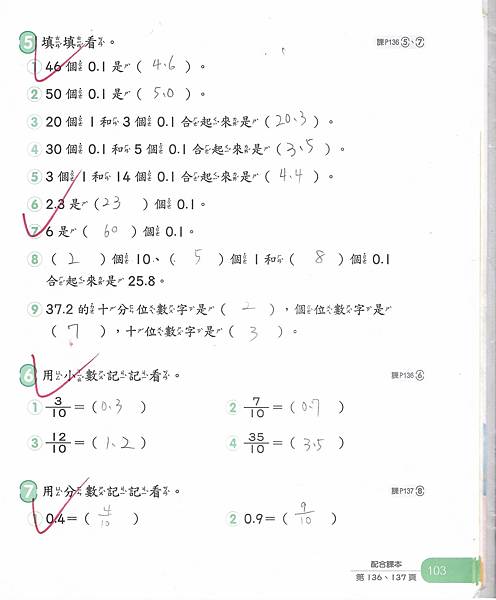 5 填填看。 課P136⑤、⑦
① 46 個 0.1 是（ 4.6 ）。
② 50 個 0.1 是（ 5.0 ）。
③ 20 個 1 和 3 個 0.1 合起來是（ 20.3 ）。
④ 30 個 0.1 和 5 個 0.1 合起來是（ 3.5 ）。
⑤ 3 個 1 和 14 個 0.1 合起來是（ 4.4 ）。
⑥ 2.3 是（ 23 ）個 0.1。
⑦ 6 是（ 60 ）個 0.1。
⑧ （ 2 ）個 10、（ 5 ）個 1 和（ 8 ）個 0.1
合起來是 25.8。
⑨ 37.2 的十分位數字是（ 2 ），個位數字是
（ 7 ），十位數字是（ 3 ）。
6 用小數記記看。 課P136⑥
① 3/10＝（ 0.3 ） ② 7/10＝（ 0.7 ）
③ 12/10＝（ 1.2 ） ④ 35/10＝（ 3.5 ）
7 用分數記記看。 課P137⑧
① 0.4＝（ 4/10 ） ② 0.9＝（ 9/10 ）
配合課本
第 136、137 頁 103